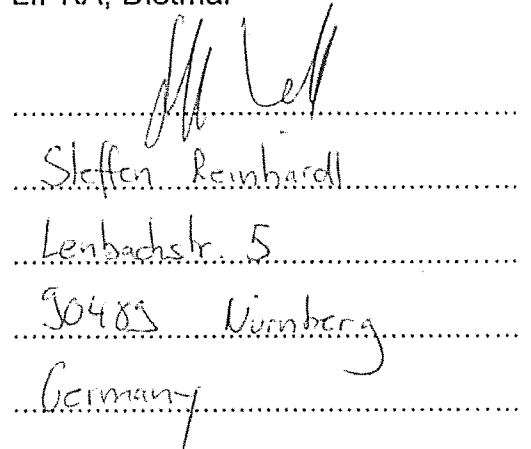 Dietmar
Steffen Reinhardt
Lenbachstr. 5
90489 Nürnberg
Germany